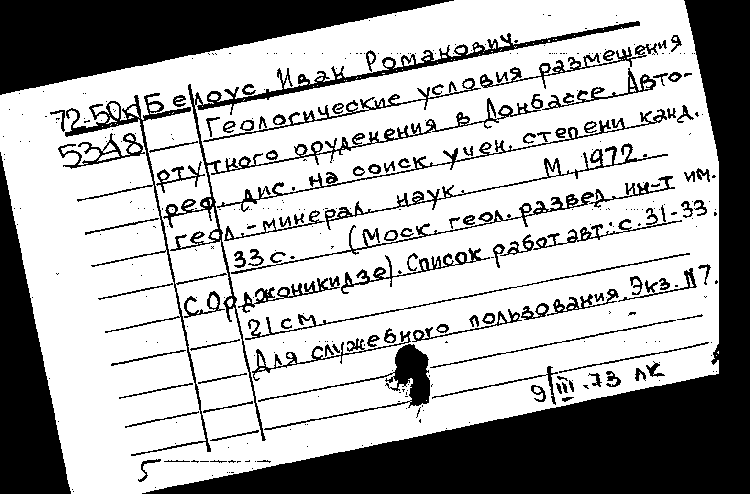 72-50к Белоус, Иван Романович.
5348 Геологические условия размещения
ртутного оруденения в Донбассе. Авто-
реф. дис. на соиск. учен. степени канд.
геол.-минерал. наук. М., 1972.
33 с. (Моск. геол. развед. ин-т им.
С. Орджоникидзе). Список работ авт.: с. 31-33.
21 см.
Для служебного пользования. Экз. №7.
9/III.73 лк
5